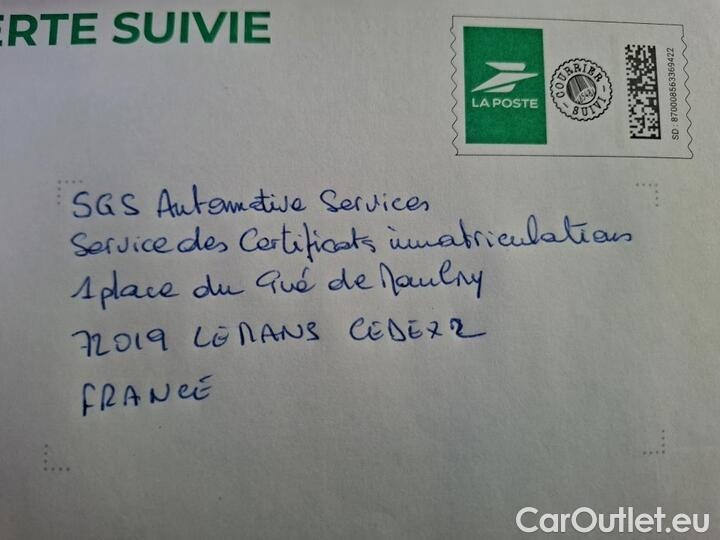 ERTE SUIVIE
LA POSTE
COURRIER SUIVI
SD : 870008563369422
SGS Automotive Services
Service des Certificats immatriculations
1 place du Gué de Maulny
72019 LE MANS CEDEX 2
FRANCE
CarOutlet.eu